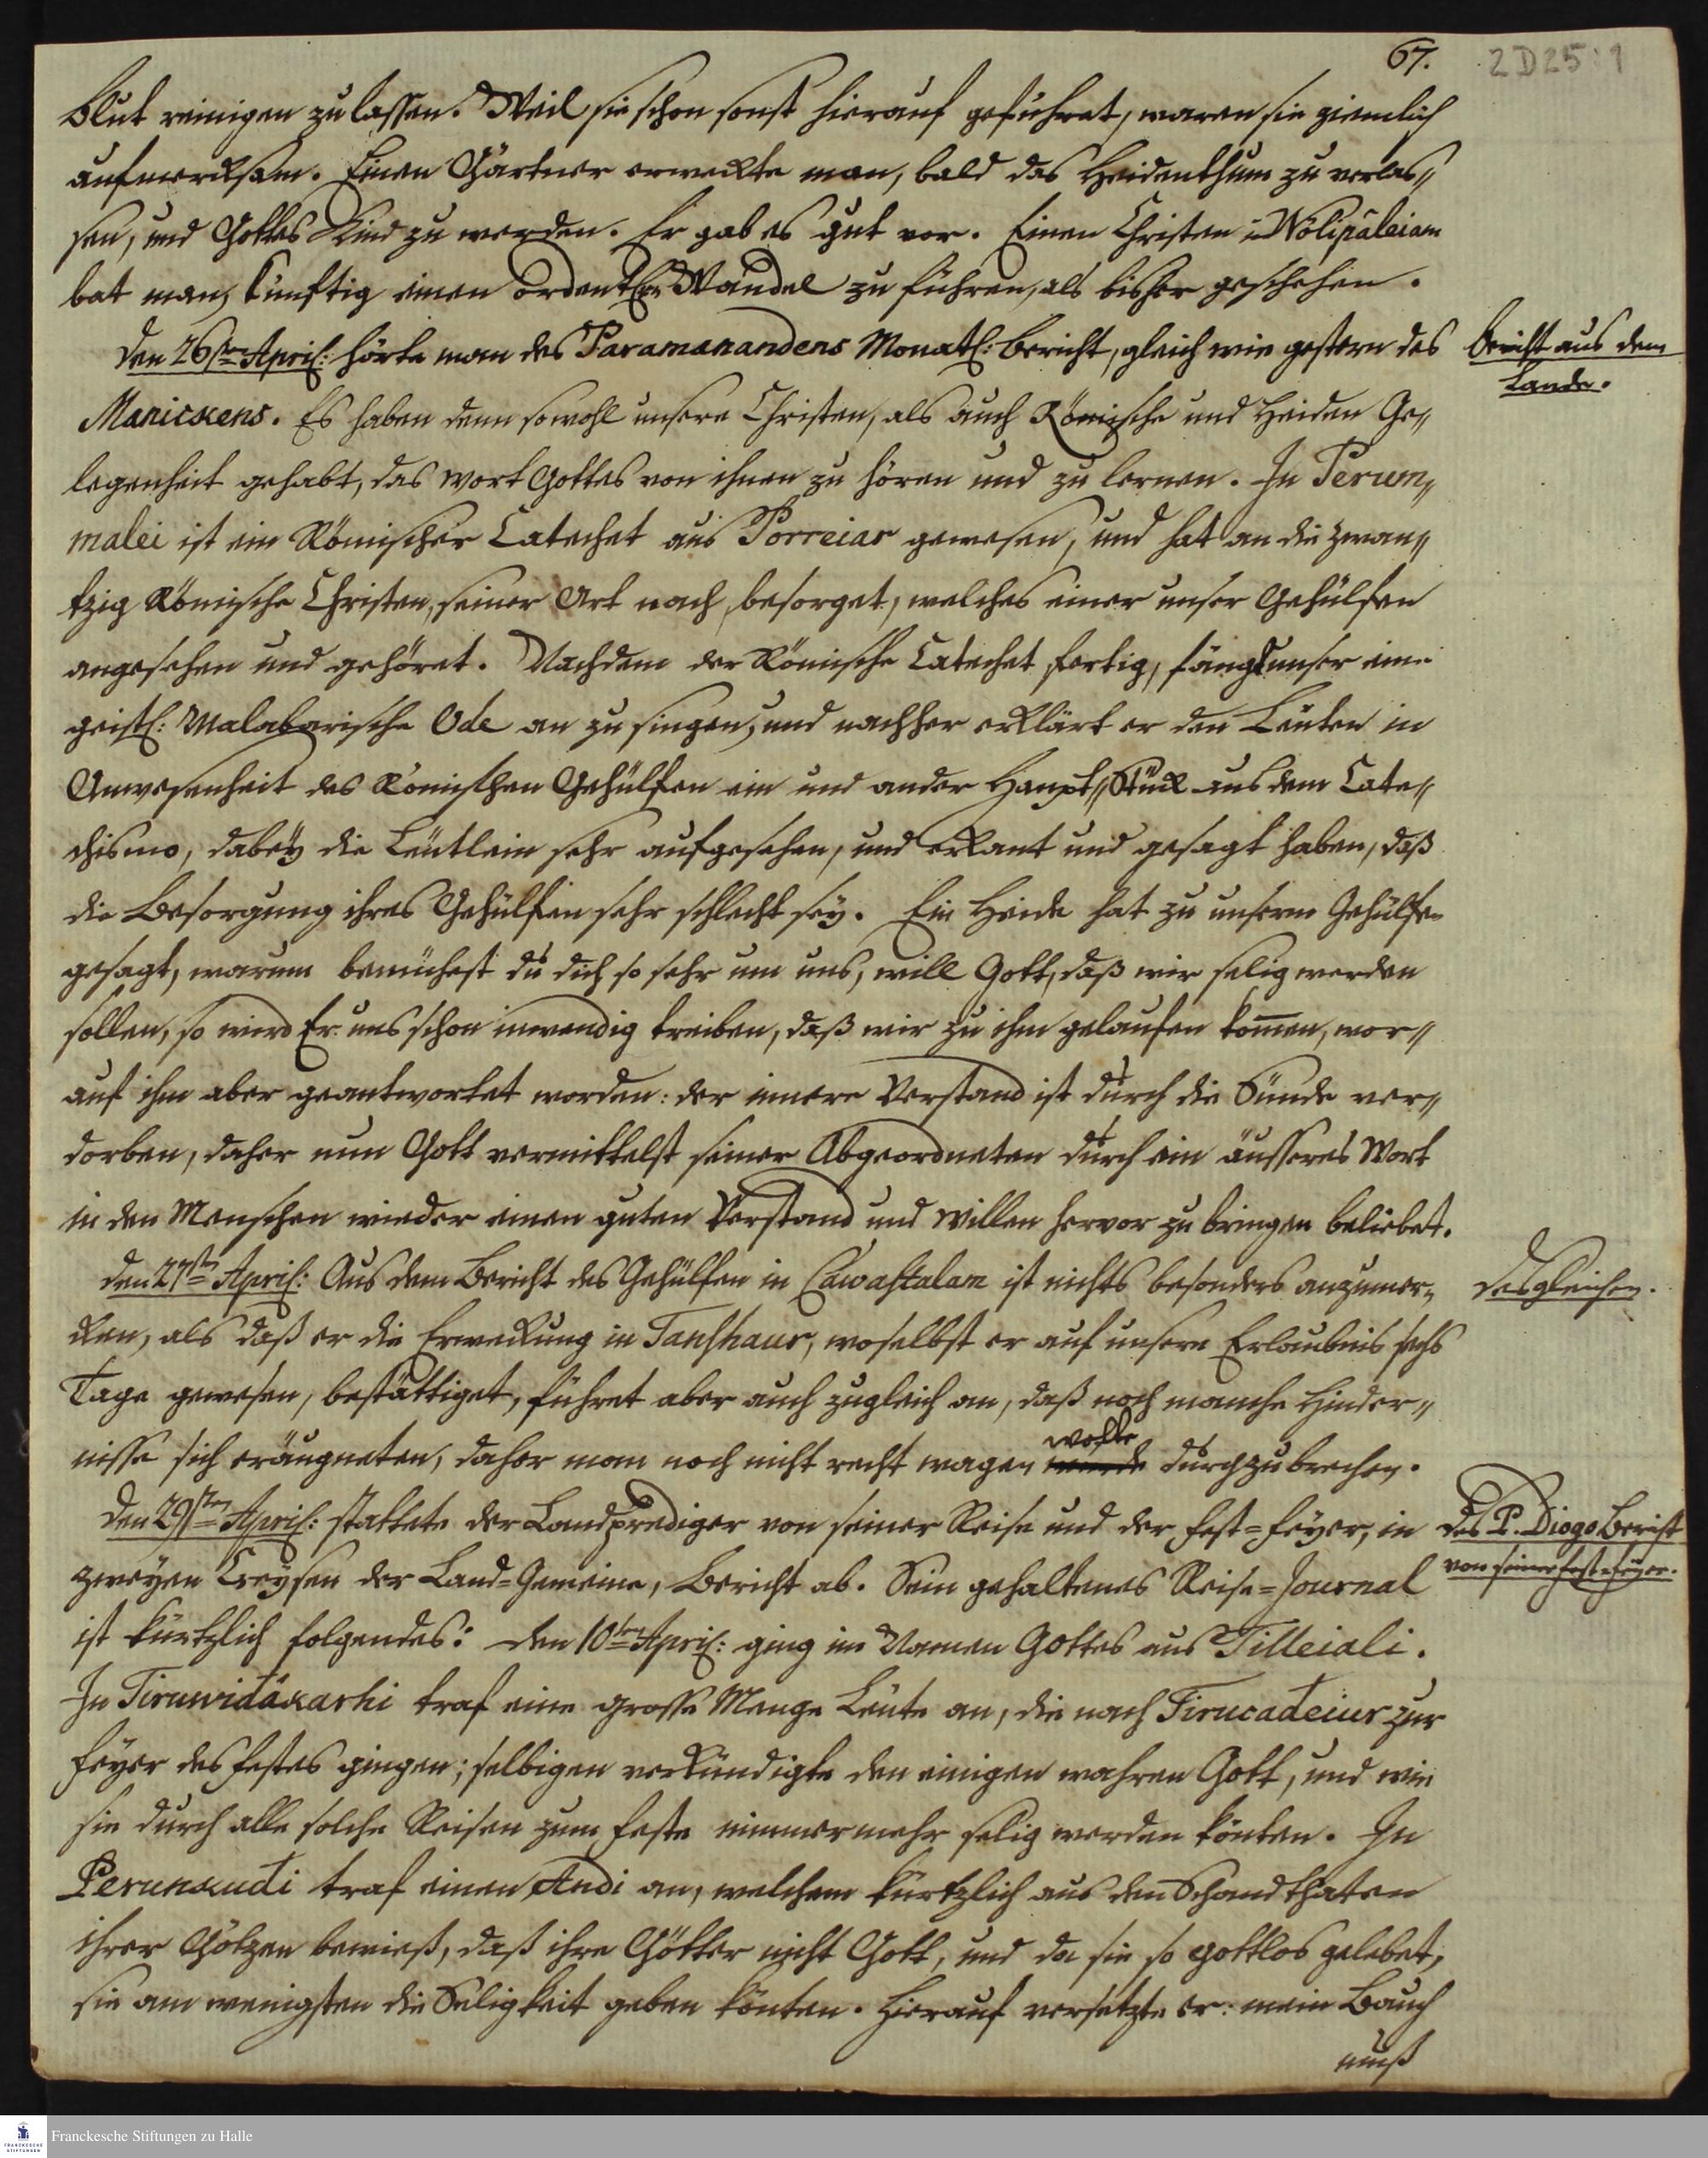 67.
2D25:1
Blut reinigen zu lassen. Weil sie schon sonst hierauf geführet, waren sie ziemlich
aufmercksam. Einen Gärtner erweckte man, bald das Heidenthum zu verlas„
sen, und Gottes Kind zu werden. Er gab es gut vor. Einen Christen in Wölipâleiam
bat man, künftig einen ordentlen Wandel zu führen, als bisher geschehen.
Den 26sten April: hörte man des Paramanandens Monatl: Bericht, gleich wie gestern des
Bericht aus dem
Lande.
Manickens. Es haben denn sowohl unsere Christen, als auch Römische und Heiden Ge„
legenheit gehabt, das Wort Gottes von ihnen zu hören und zu lernen. In Perum„
malei ist ein Römischer Catechet aus Porreiar gewesen, und hat an die zwan„
tzig Römische Christen, seiner Art nach, besorget, welches einer unser Gehülfen
angesehen und gehöret. Nachdem der Römische Catechet fertig, fängt unser eine
geistl: Malabarische Ode an zu singen, und nachher erklärt er den Leuten in
Anwesenheit des Römischen Gehülfen ein und ander Haupt„Stück aus dem Cate„
chismo, dabey die Leutlein sehr aufgesehen, und erkant und gesagt haben, daß
die Besorgung ihres Gehülfen sehr schlecht sey. Ein Heide hat zu unserm Gehülfen
gesagt, warum bemühest du dich so sehr um uns, will Gott, daß wir selig werden
sollen, so wird Er uns schon inwendig treiben, daß wir zu ihm gelaufen kom̅en, wor„
auf ihm aber geantwortet worden: der innere Verstand ist durch die Sünde ver„
dorben, daher nun Gott vermittelst seiner Abgeordneten durch ein äusseres Wort
in den Menschen wieder einen guten Verstand und Willen hervor zu bringen beliebet.
den 27sten April: Aus dem Bericht des Gehülfen in Cawastalam ist nichts besonders anzumer„
Desgleichen.
cken, als daß er die Erweckung in Tanshaur, woselbst er auf unsere Erlaubnis sechs
Tage gewesen, bestättiget, führet aber auch zugleich an, daß noch manche Hinder„
nisse sich eräugneten, daher man noch nicht recht wagen wolte durchzubrechen.
Den 29sten April: stattete der Landprediger von seiner Reise und der Fest=Feyer, in
des P. Diogo Bericht
von seiner Fest=Feyer.
zweyen Creysen der Land=Gemeine, Bericht ab. Sein gehaltenes Reise=Journal
ist kürtzlich folgendes: Den 10ten April: ging im Namen Gottes aus Tilleiali.
In Tiruwidâkarhi traf eine grosse Menge Leute an, die nach Tirucadeiur zur
Feyer des Festes gingen; selbigen verkündigte den einigen wahren Gott, und wie
sie durch alle solche Reisen zum Feste nimmermehr selig werden könten. In
Perunkudi traf einen Andi an, welchem kürtzlich aus den Schandthaten
ihrer Götzen bewieß, daß ihre Götter nicht Gott, und da sie so gottlos gelebet,
sie am wenigsten die Seligkeit geben könten. Hierauf versetzte er: mein Bauch
muß
Franckesche Stiftungen zu Halle